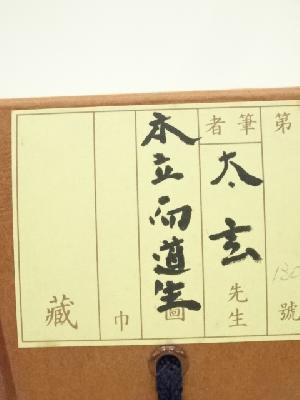 第 號
筆者 太玄 先生
本立而道生 圖
巾
藏